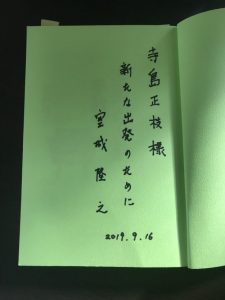 寺島正枝様
新たな出発のために
宮城隆之
2019.9.16